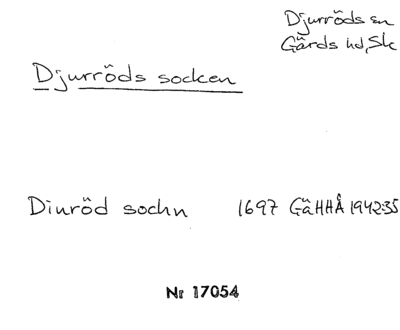 Djurröds sn
Gärds hd, Sk
Djurröds socken
Diuröd sochn 1697 GäHHÅ 1942:35
Nr 17054